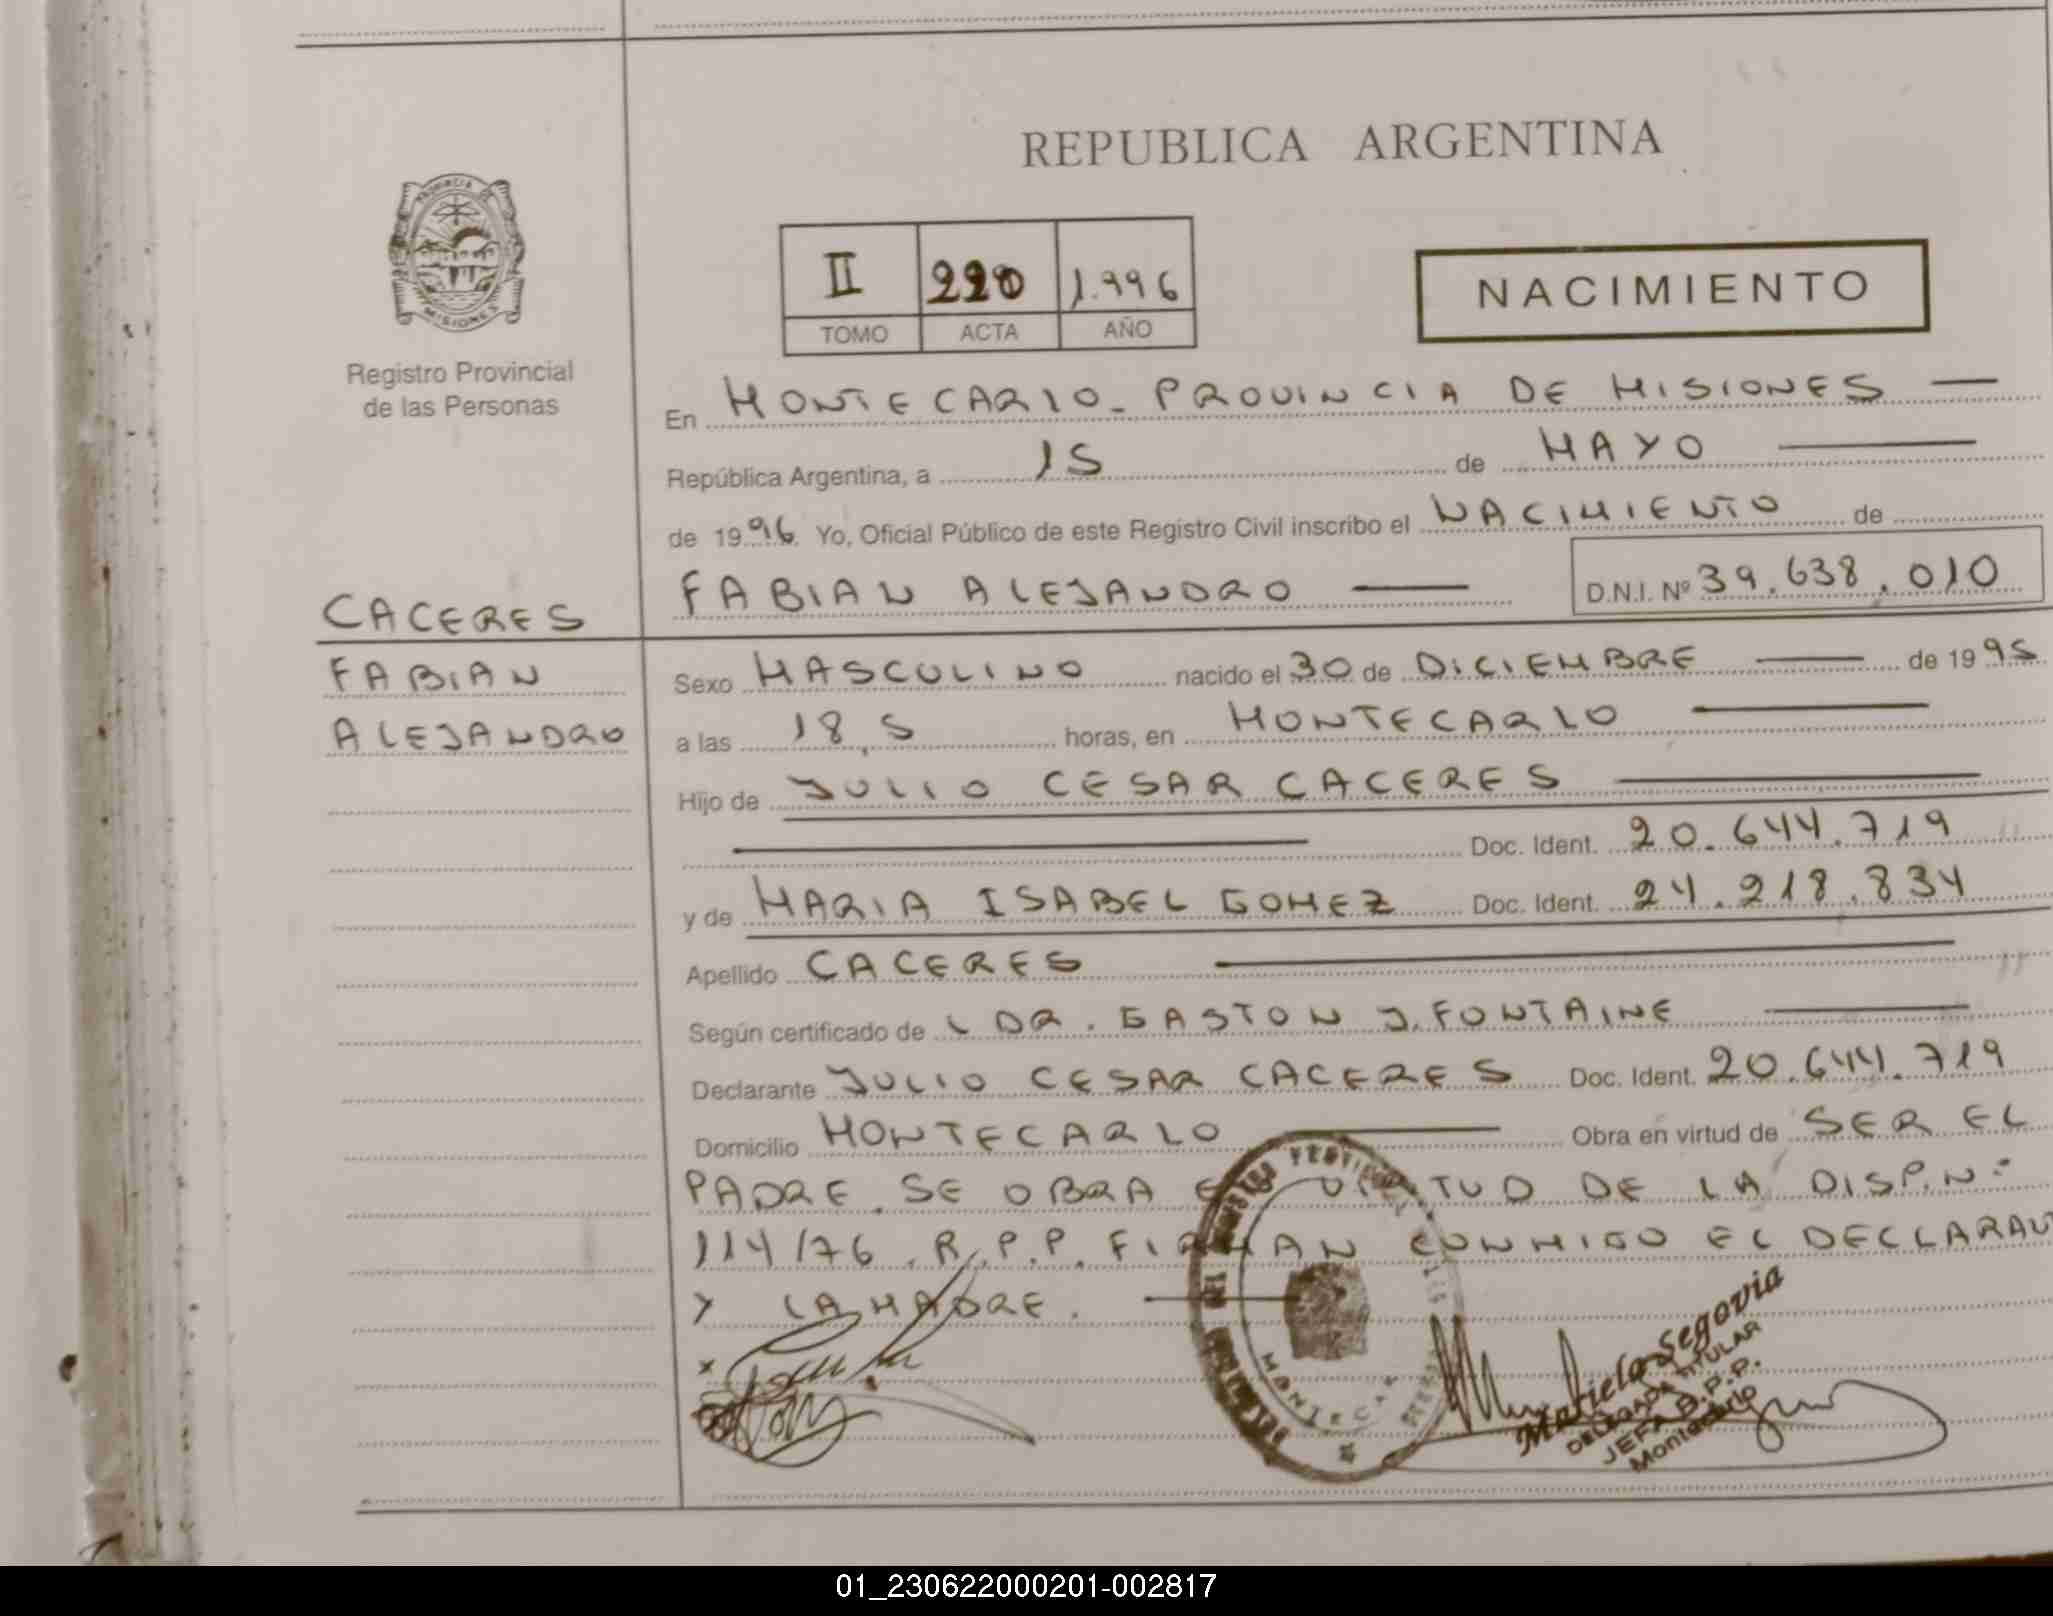 REPUBLICA ARGENTINA
PROVINCIA DE
MISIONES
Registro Provincial
de las Personas
II 220 1.996
TOMO ACTA AÑO
NACIMIENTO
En MONTECARLO - PROVINCIA DE MISIONES
República Argentina, a 15 de MAYO
de 1996 Yo, Oficial Público de este Registro Civil inscribo el NACIMIENTO de
FABIAN ALEJANDRO D.N.I. Nº 39.638.010
CACERES
FABIAN
ALEJANDRO
Sexo MASCULINO nacido el 30 de DICIEMBRE de 1995
a las 18,5 horas, en MONTECARLO
Hijo de JULIO CESAR CACERES
Doc. Ident. 20.644.719
y de MARIA ISABEL GOMEZ Doc. Ident. 24.218.834
Apellido CACERES
Según certificado de L DR. GASTON J. FONTAINE
Declarante JULIO CESAR CACERES Doc. Ident. 20.644.719
Domicilio MONTECARLO Obra en virtud de SER EL
PADRE. SE OBRA EN VIRTUD DE LA DISP.N:
114/76. R.P.P. FIRMAN CONMIGO EL DECLARAN
Y LA MADRE.
x
Mariela Segovia
DELEGADA TITULAR
JEFA B.P.P.
Montecarlo
01_230622000201-002817